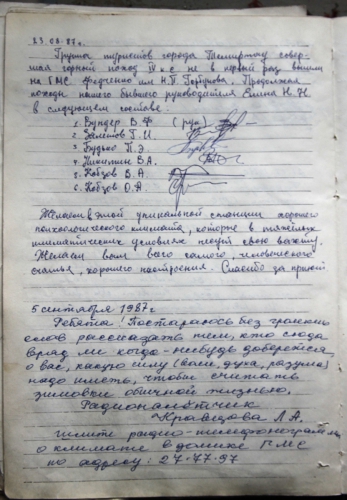 23.08.87г.
Группа туристов города Темиртау совер-
шая горный поход IV к.с. не в первый раз вышли
на ГМС Федченко им Н.П. Горбунова. Продолжая
походы нашего бывшего руководителя Елина Н.Н
в следующем составе:
1. Вундер В.Ф (рук)
2. Залетов Г.И.
3. Будько П.Э.
4. Никитин В.А.
5. Кобзов В.А.
6. Кобзов О.А.
Желаем этой уникальной станции хорошего
психологического климата, которые в тяжёлых
климатических условиях несут свою вахту.
Желаем вам всего самого, человеческого
счастья, хорошего настроения. Спасибо за приют
5 сентября 1987г
Ребята! Постараюсь без громких
слов рассказать тем, кто сюда
вряд ли когда-нибудь доберется,
о вас, какую силу (воли, духа, разума)
надо иметь, чтобы считать
зимовки обычной жизнью.
Радиожурналистка
Кравцова Л.А.
радио-телефонограммы
о климате в домике ГМС
по адресу: 27-77-97